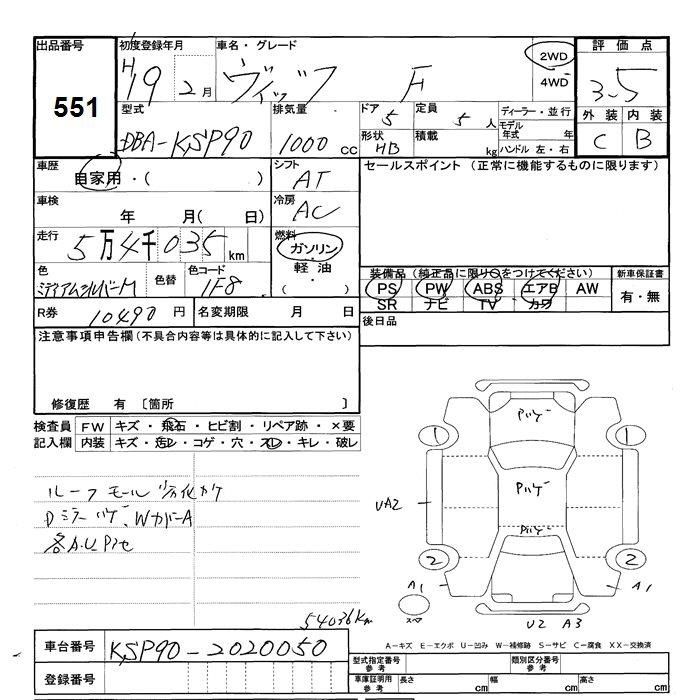 出品番号
551
初度登録年月
H19 2月
車名・グレード
ヴィッツ F
2WD
4WD
評価点
3.5
外装 内装
C B
型式
DBA-KSP90
排気量
1000 cc
ドア 5
定員 5人
形状 HB
積載 kg
ディーラー・並行
モデル年式 年
ハンドル 左・右
車歴
自家用・( )
シフト
AT
車検
年 月( 日)
冷房
AC
走行
5万4千035km
燃料
ガソリン
軽油
色
ミディアムシルバーM
色替
色コード
1F8
R券 10490円
名変期限 月 日
セールスポイント (正常に機能するものに限ります)
装備品(純正品に限り○をつけてください)
PS PW ABS エアB AW
SR ナビ TV カワ
新車保証書
有・無
後日品
注意事項申告欄(不具合内容等は具体的に記入して下さい)
修復歴 有 〔箇所 〕
検査員記入欄
FW キズ・飛石・ヒビ割・リペア跡・×要
内装 キズ・汚レ・コゲ・穴・スレ・キレ・破レ
ルーフモール劣化カケ
Dミラーハゲ、WカバーA
各A.U
54036Km
パハゲ
パハゲ
パハゲ
1 1
UA2
2 2
A1 A1
スペア
U2 A3
A-キズ E-エクボ U-凹み W-補修跡 S-サビ C-腐食 XX-交換済
車台番号 KSP90-2020050
登録番号
型式指定番号参考
類別区分番号参考
車庫証明用参考
長さ cm 幅 cm 高さ cm